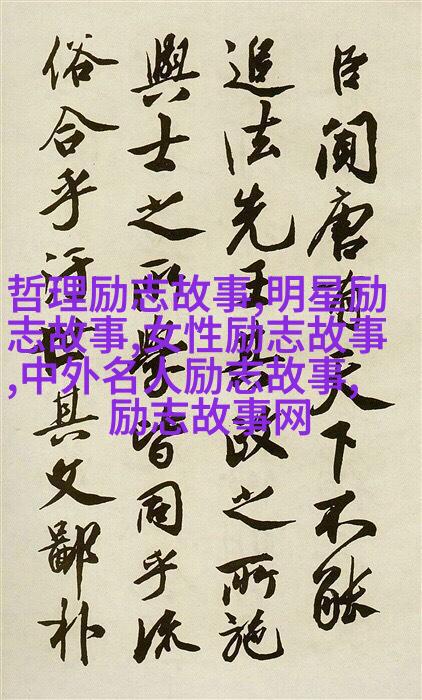 臣闻唐有天下不能
追法先王政之所施
與士之所學皆同乎流
俗合乎汙世其文鄙朴
哲理励志故事,明星励
志故事,女性励志故事
,中外名人励志故事,
励志故事网